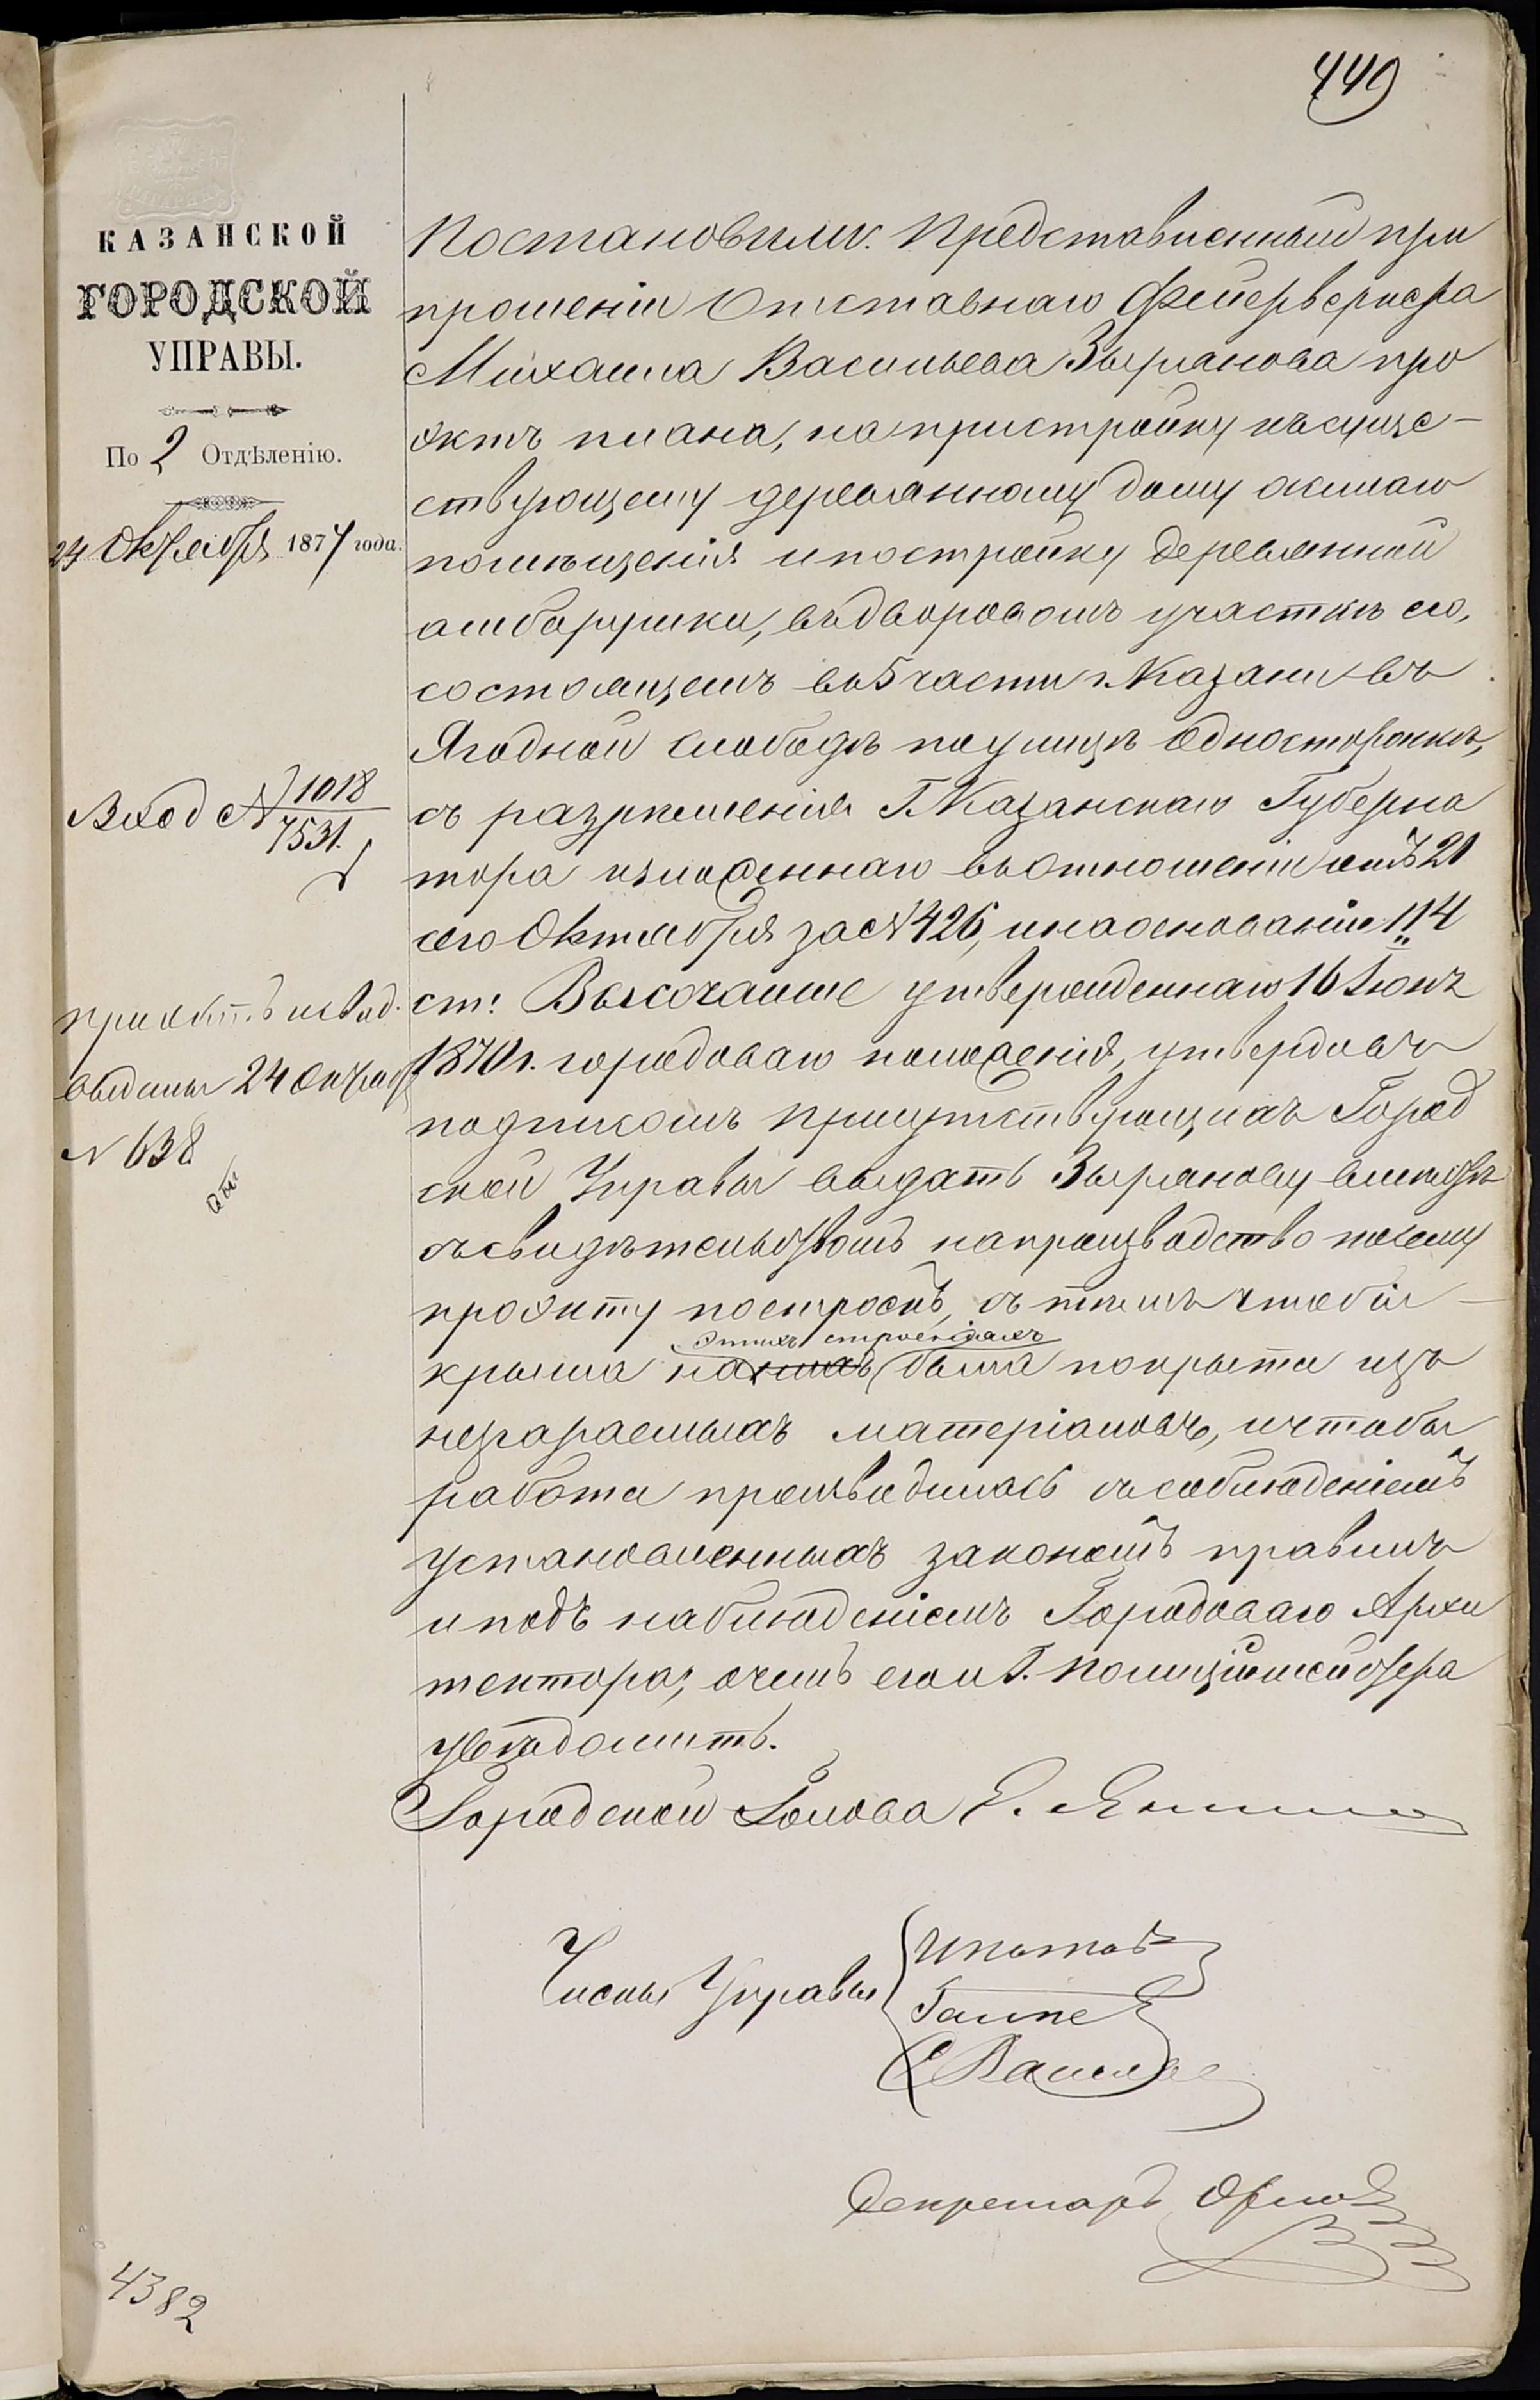 449
КАЗАНСКОЙ
ГОРОДСКОЙ
УПРАВЫ.
По 2 Отдѣленію.
24 Октября 1874 года.
Вход №1018
7531.
Проэктъ и свид.
выданы 24 Октяб
№ 638
Постановили: Представленный при
прошеніи Отставнаго Фейерверкера
Михаила Васильева Зырянова про
эктъ плана, на пристройку къ суще-
ствующему деревянному дому жилаго
помѣщенія и постройку деревянной
амбарушки, въ дворовомъ участкѣ его,
состоящемъ въ 5 части г. Казани въ
Ягодной слободѣ по улицѣ Односторонкѣ,
съ разрѣшенія Г. Казанскаго Губерна
тора изложеннаго въ отношеніи отъ 21
сего Октября за №426, и на основаніи 114
ст: Высочайше утвержденнаго 16 Іюня
1870 г. городоваго положенія, утвердивъ
подписомъ присутствующихъ Город
ской Управы выдать Зырянову вместѣ
съ свидѣтельствомъ на производство по сему
проэкту построекъ, съ тѣмъ чтобы
этихъ строеніяхъ
крыша на была покрыта изъ
незгараемыхъ матеріаловъ, и чтобы
работа производилась съ соблюденіемъ
установленныхъ закономъ правилъ
и подъ наблюденіемъ Городоваго Архи
тектора; о чемъ его и Г. Полиціймейстера
увѣдомить.
Городской Голова Э. Янишев
Члены Управы
Ипатов
Гаппе
Секретарь Орлов
4382